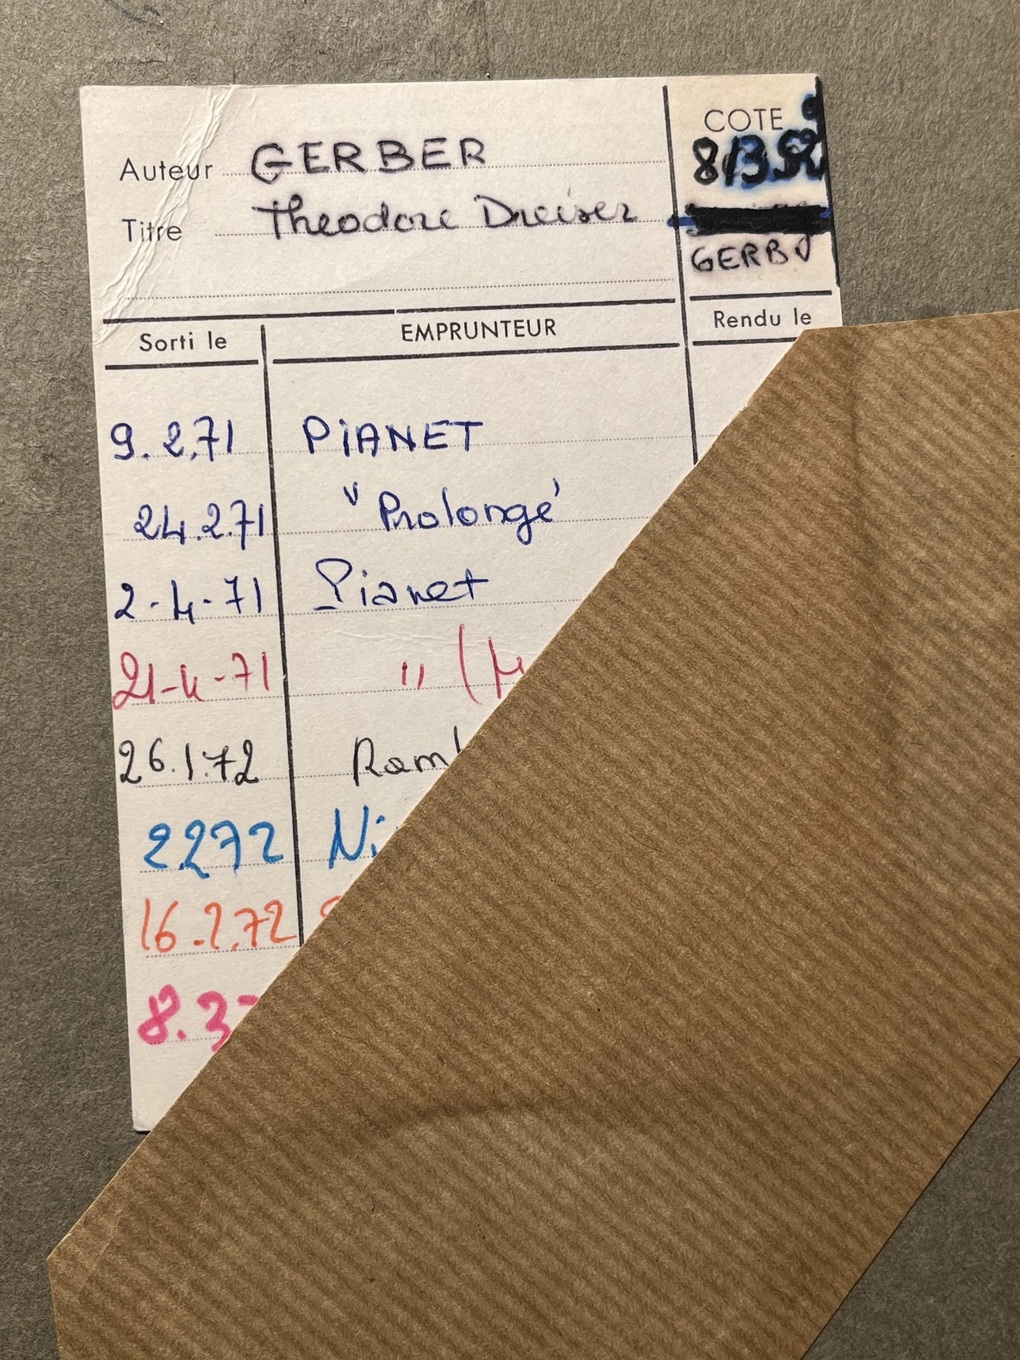 COTE
Auteur GERBER 813.52
Titre Theodore Dreiser
GERB
Sorti le EMPRUNTEUR Rendu le
9.2.71 PIANET
24.2.71 " Prolongé
2-4-71 Pianet
21-4-71 " (
26.1.72
2272
16.2.72
8.3